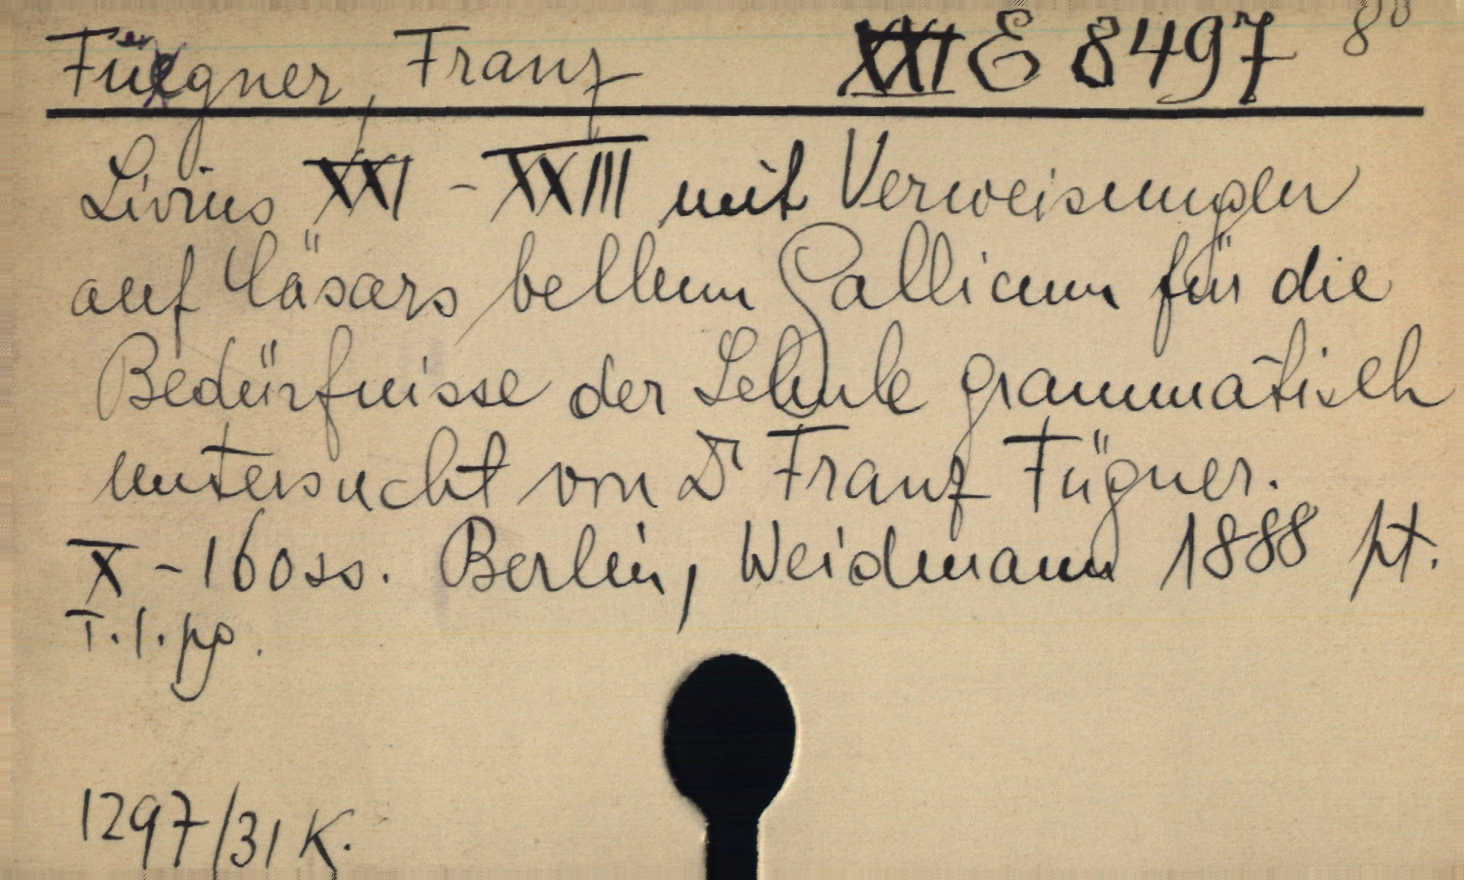 Fügner, Franz XXI E 8497 8°
Livius XXI - XXIII mit Verweisungen
auf Cäsars bellum Gallicum für die
Bedürfnisse der Schule grammatisch
untersucht von Dr Franz Fügner.
X - 160 ss. Berlin, Weidmann 1888 pt.
T. l. pp.
1297/31 K.